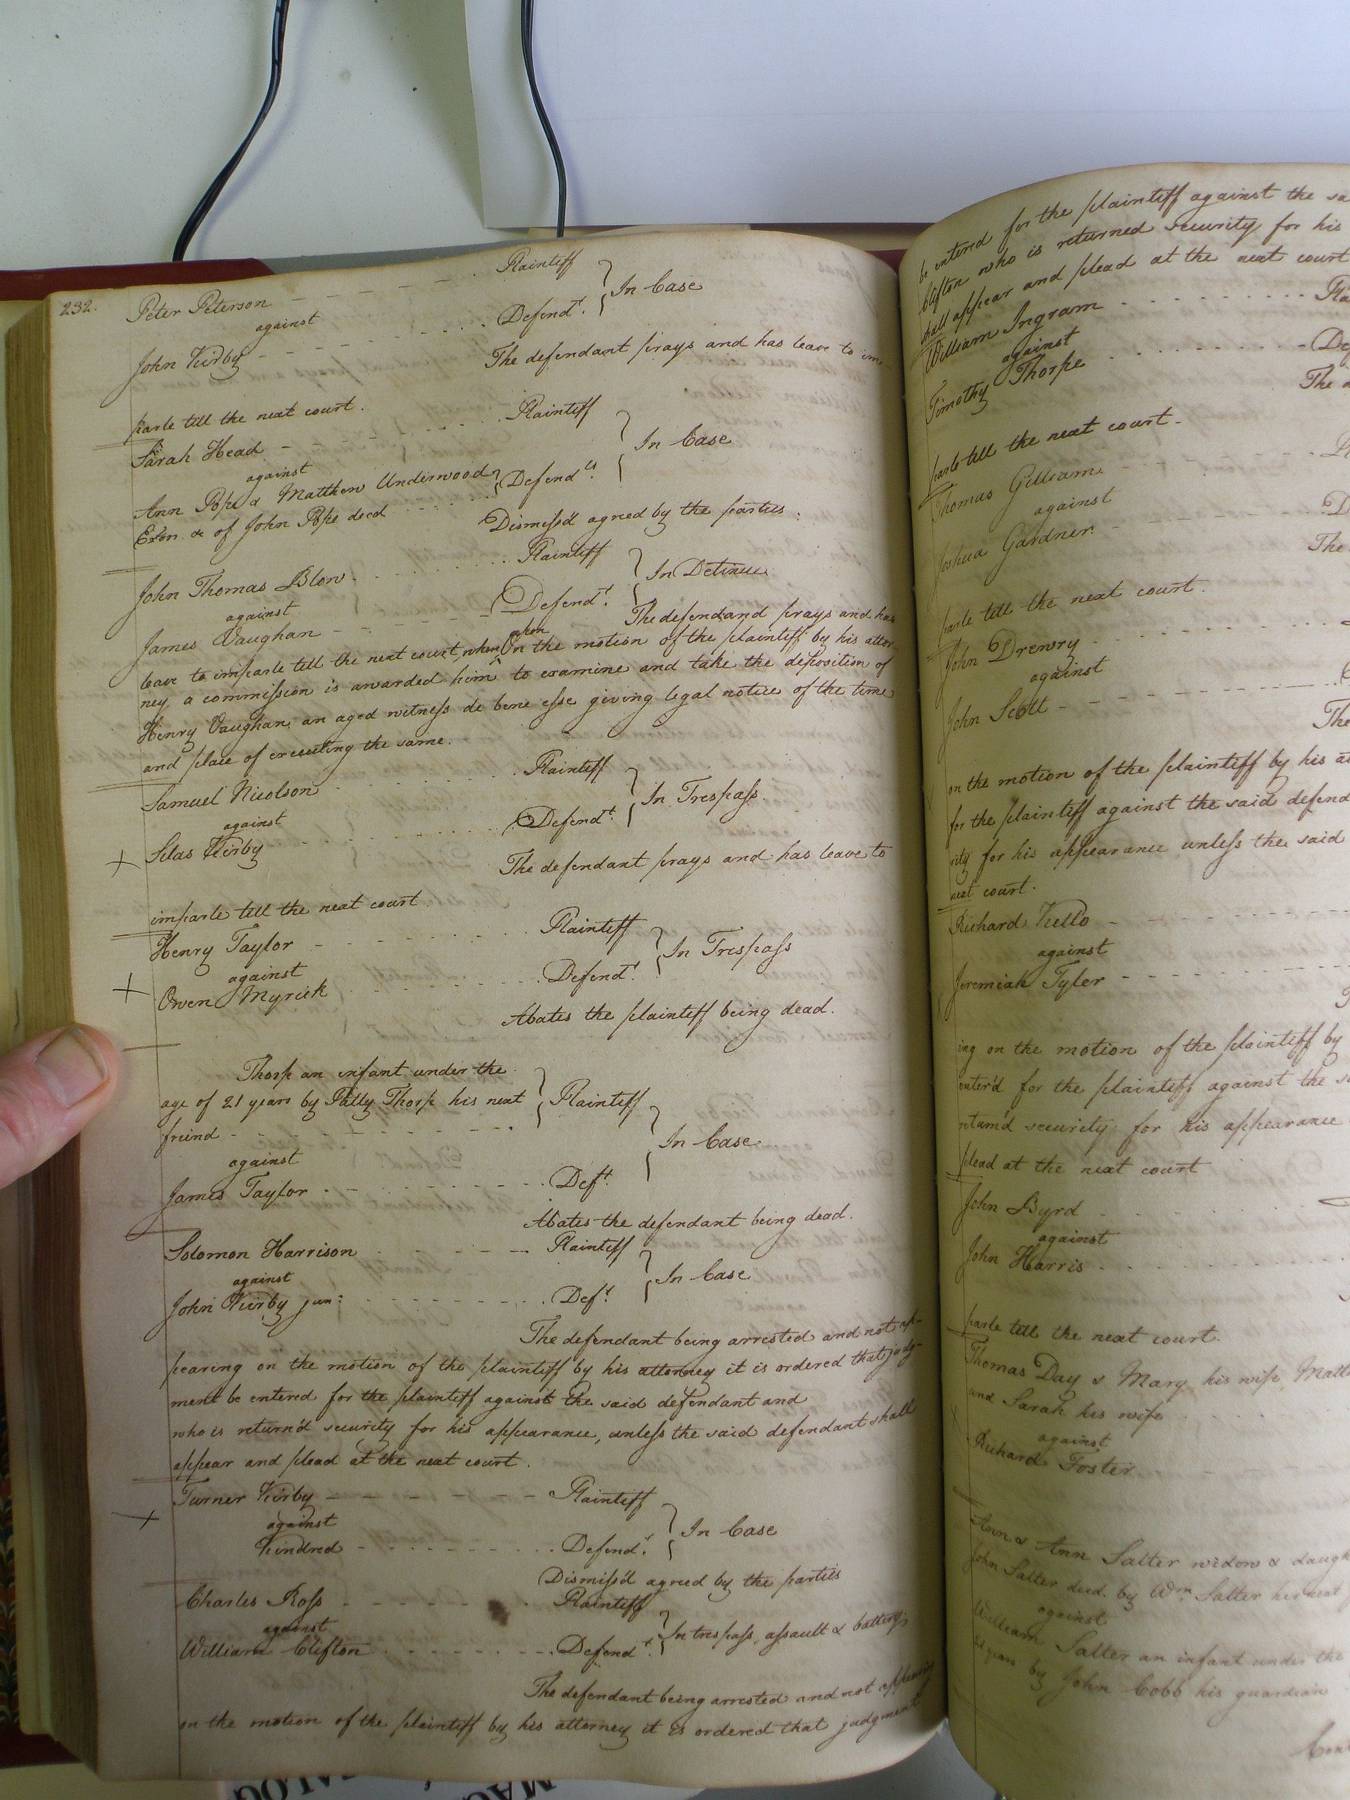 232.
Peter Peterson Plaintiff
against In Case
John Kirby Defendt.
The defendant prays and has leave to im-
parle till the next court.
Sarah Head Plaintiff
against In Case
Ann Pope & Matthew Underwood Defendts
Exon. &c of John Pope decd
Dismiss'd agreed by the parties.
John Thomas Blow Plaintiff
against In Detinue
James Vaughan Defendt.
The defendand prays and has
leave to imparle till the next court, when upon On the motion of the plaintiff by his attor-
ney, a commission is awarded him to examine and take the deposition of
Henry Vaughan, an aged witness de bene esse giving legal notice of the time
and place of executing the same.
Samuel Nicolson Plaintiff
against In Trespass.
Silas Kirby Defendt.
The defendant prays and has leave to
imparle till the next court
Henry Taylor Plaintiff
against In Trespass
Owen Myrick Defendt.
Abates the plaintiff being dead.
Thorp an infant under the
age of 21 years by Patty Thorp his next Plaintiff
freind
against In Case
James Taylor Deft.
Abates the defendant being dead.
Solomon Harrison Plaintiff
against In Case
John Kirby junr. Deft.
The defendant being arrested and not ap-
pearing on the motion of the plaintiff by his attorney it is ordered that judg-
ment be entered for the plaintiff against the said defendant and
who is return'd security for his appearance, unless the said defendant shall
appear and plead at the next court.
Turner Kirby Plaintiff
against In Case
Kindred Defendt.
Dismiss'd agreed by the parties
Charles Ross Plaintiff
against In trespass, assault & battery
William Clifton Defendt.
The defendant being arrested and not appearing
on the motion of the plaintiff by his attorney it is ordered that judgment
be entered for the plaintiff against the sa
Clifton who is returned security for his
shall appear and plead at the next court
William Ingram Pla
against
Timothy Thorpe De
The d
parle till the next court.
Thomas Gilliam
against
Joshua Gardner. D
The
parle till the next court.
John Drewry
against
John Scott
The
on the motion of the plaintiff by his at
for the plaintiff against the said defend
rity for his appearance unless the said
next court.
Richard Kello
against
Jeremiah Tyler
ing on the motion of the plaintiff by
enter'd for the plaintiff against the s
return'd security for his appearance
plead at the next court
John Byrd
against
John Harris
parle till the next court.
Thomas Day & Mary his wife, Matt
and Sarah his wife
against
Richard Foster
Ann & Ann Salter widow & daugh
John Salter decd. by Wm. Salter her next
against
William Salter an infant under the
21 years by John Cobb his guardian